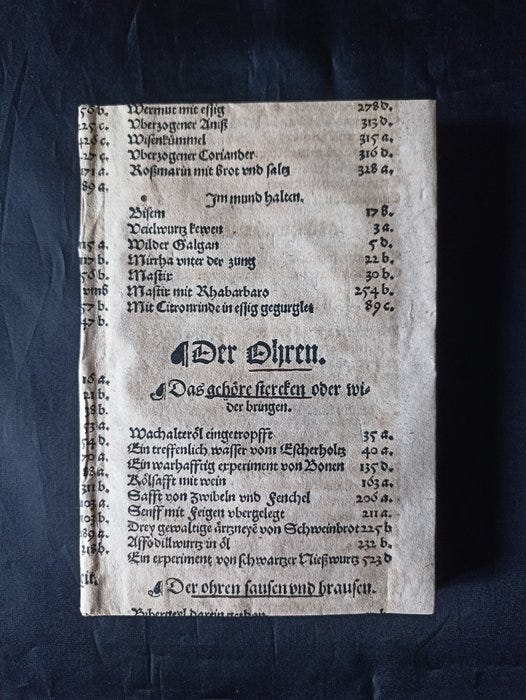 56 b.
225 c.
426 c.
27 c.
171 a.
89 a.
15 a.
117 b.
56 b.
vmb
57 b.
47 b.
16 a.
21 b.
38 b.
53 a.
54 d.
70 a.
83 a.
311 b.
103 a.
103 b.
218 b.
Wermut mit essig 278 d.
Vberzogener Aniß 313 d.
Wisenkümmel 315 a.
Vberzogener Coriander 316 d.
Roßmarin mit brot vnd saltz 328 a.
Jm mund halten.
Bisem 17 b.
Veielwurtz kewen 3 a.
Wilder Galgan 5 d.
Mirrha vnter der zung 22 b.
Mastix 30 b.
Mastix mit Rhabarbaro 254 b.
Mit Citronrinde in essig gegurglet 89 c.
Der Ohren.
Das gehöre stercken oder wi-
der bringen.
Wachalteröl eingetropfft 35 a.
Ein trefflich wasser vom Escherholtz 40 a.
Ein warhafftig experiment von Bonen 135 d.
Kölsafft mit wein 163 a.
Safft von zwibeln vnd Fenchel 206 a.
Senff mit Feigen vbergelegt 211 a.
Drey gewaltige ärtzneyē von Schweinbrot 225 b
Affodillwurtz in öl 232 b.
Ein experiment von schwartzer Nießwurtz 523 d
Der ohren sausen vnd brausen.